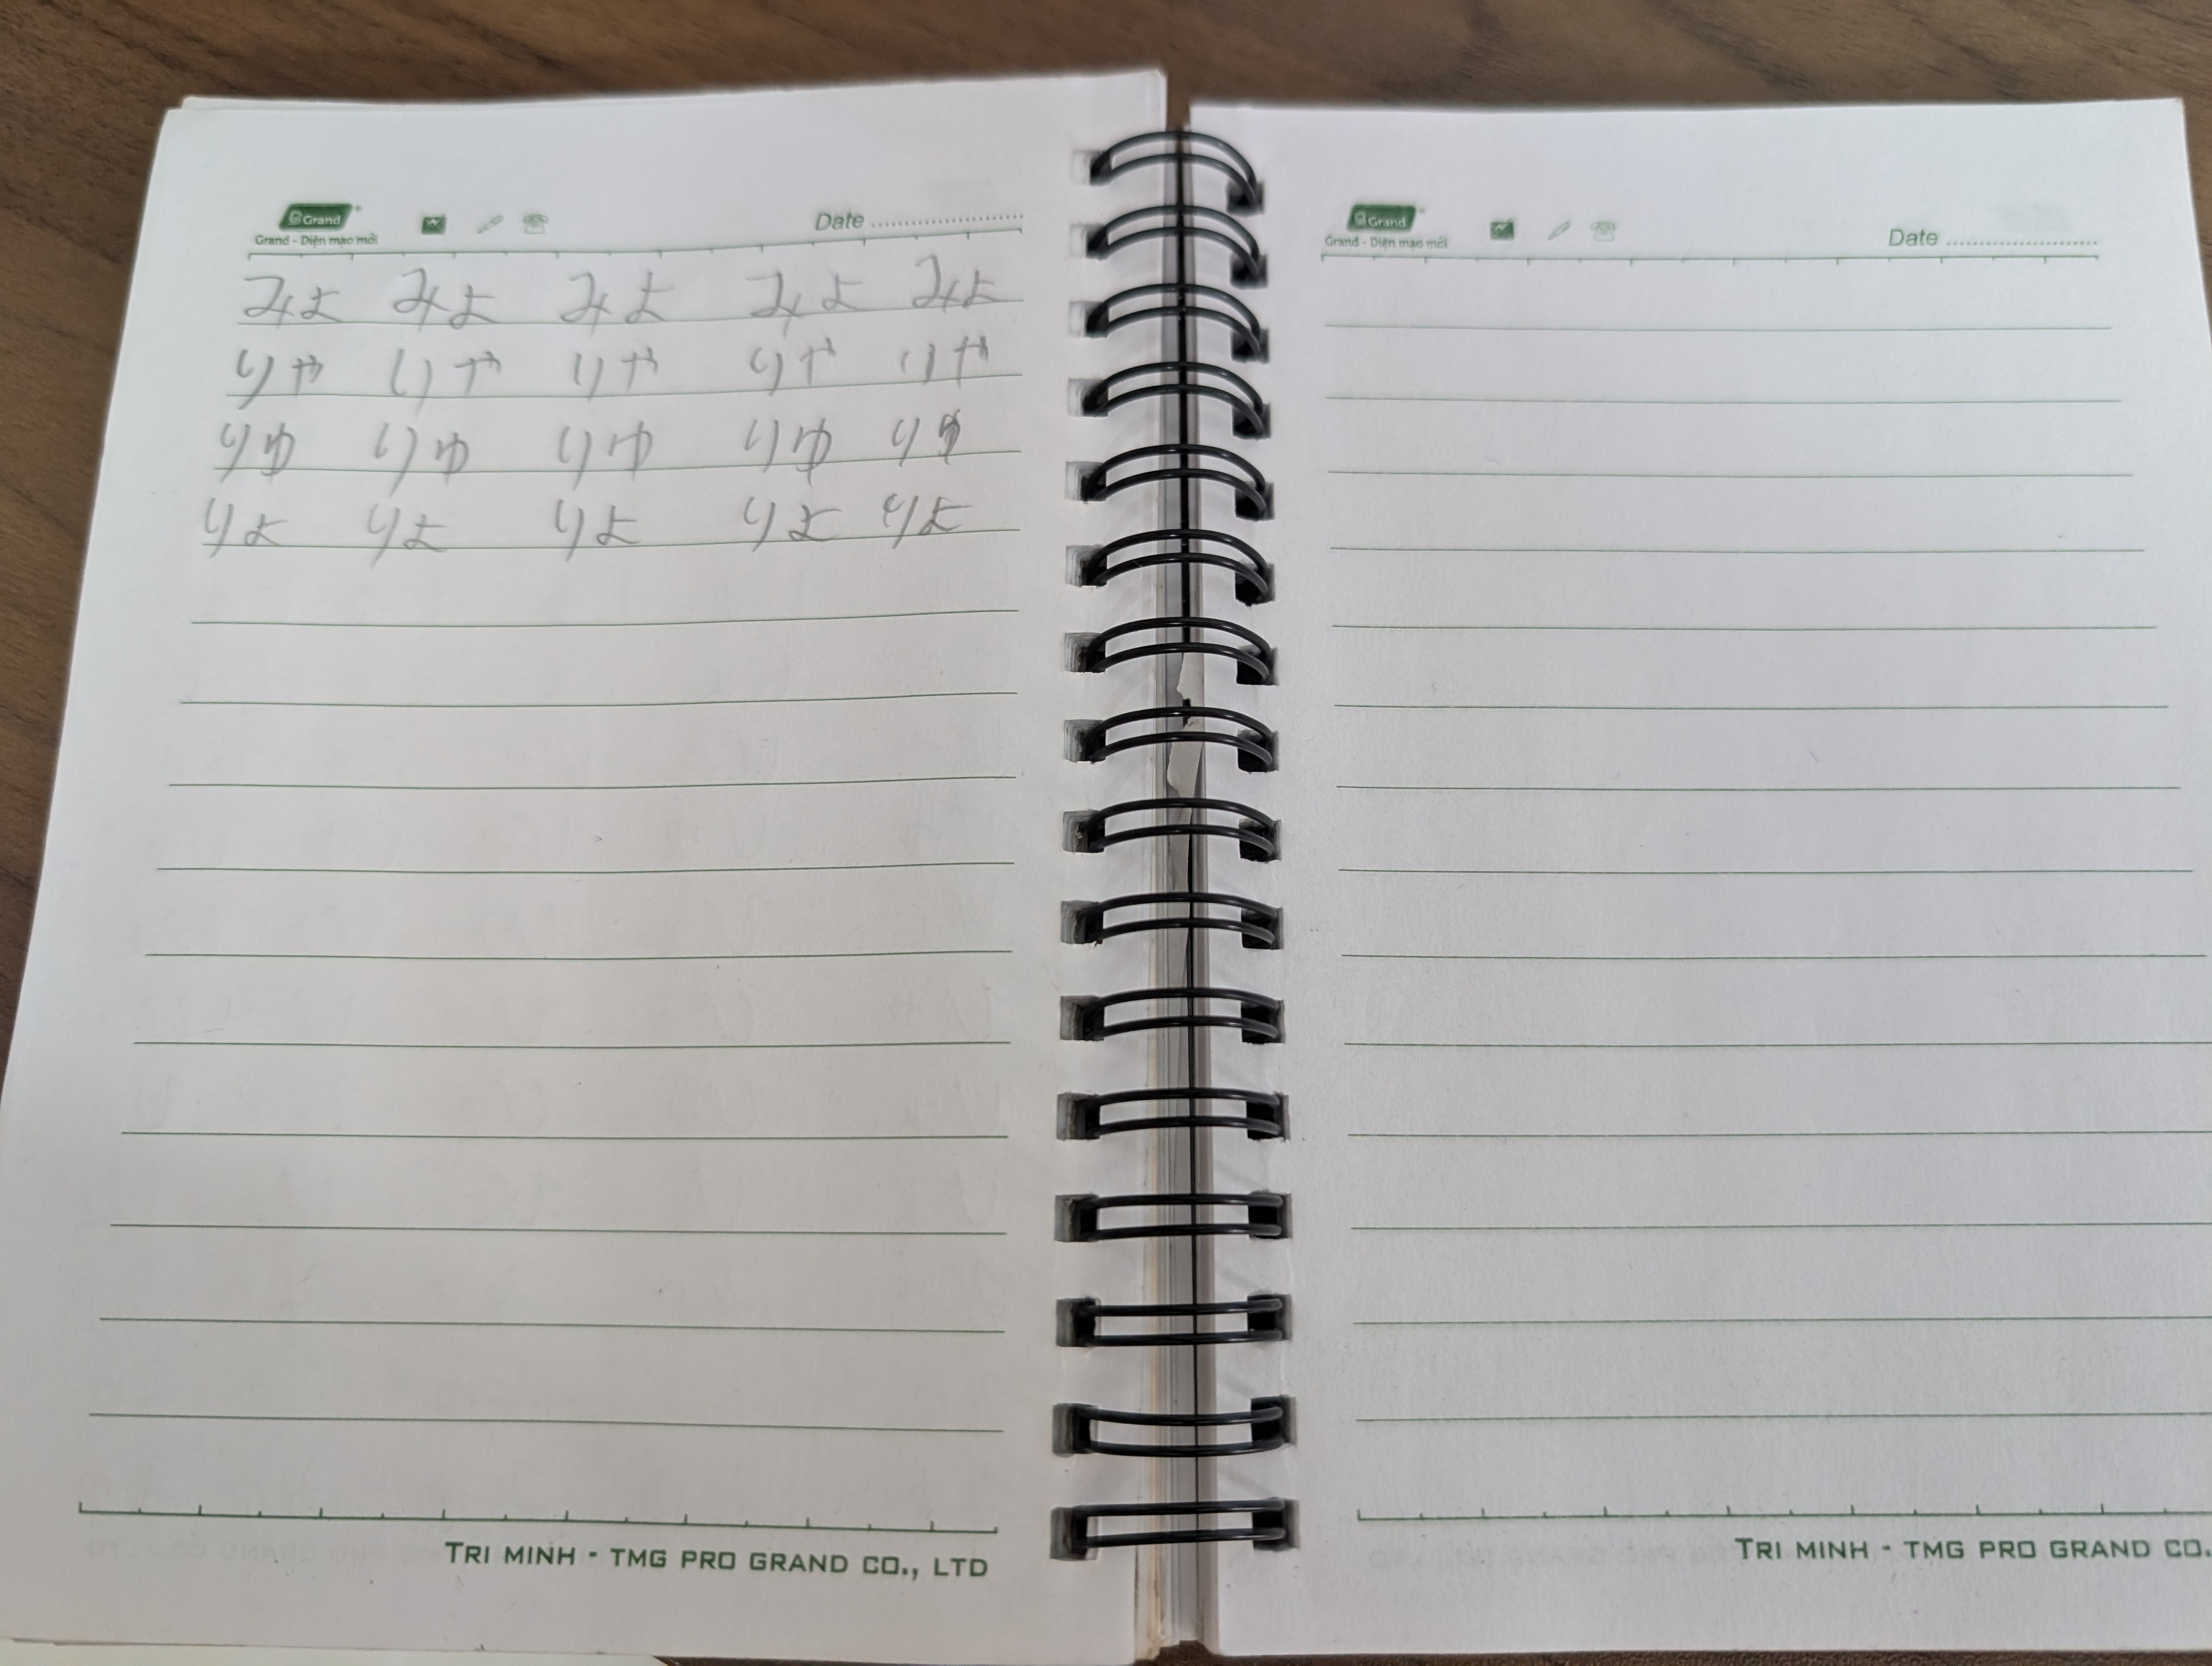 Grand
Grand - Diện mạo mới
Date
みよ みよ みよ みよ みよ
りや りや りや りや りや
りゆ りゆ りゆ りゆ りゆ
りよ りよ りよ りよ りよ
TRI MINH - TMG PRO GRAND CO., LTD
Grand
Grand - Diện mạo mới
Date
TRI MINH - TMG PRO GRAND CO.